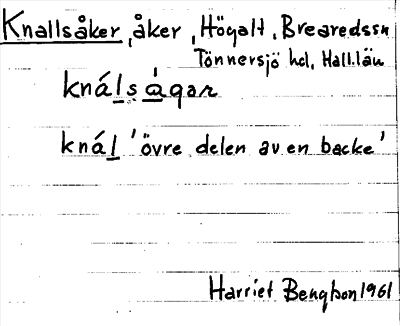 Knallsåker, åker, Högalt, Brearedssn
Tönnersjö hd, Hall.län
knáls ágar
knál 'övre delen av en backe'
Harriet Bengtson 1961